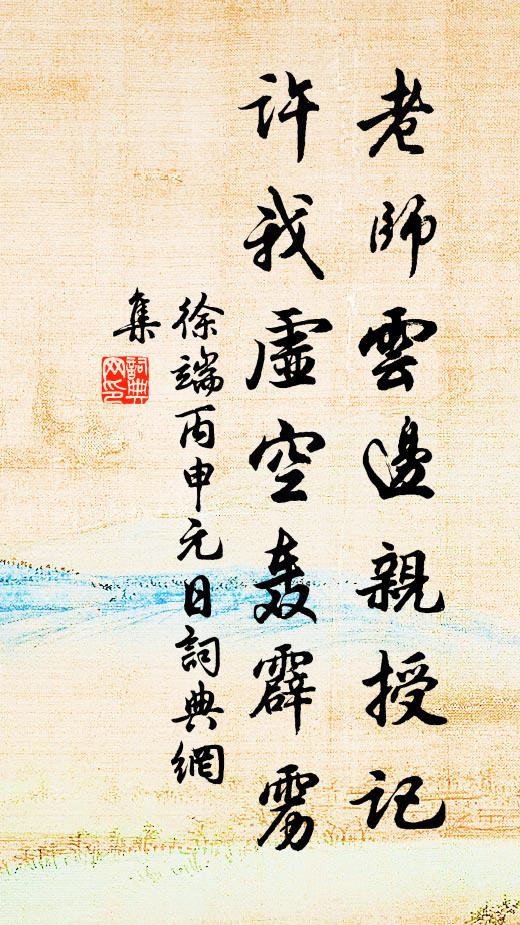 老師雲邊親授記
許我虛空轰霹雳
徐端丙申元日詞典網
集
詞典
网印